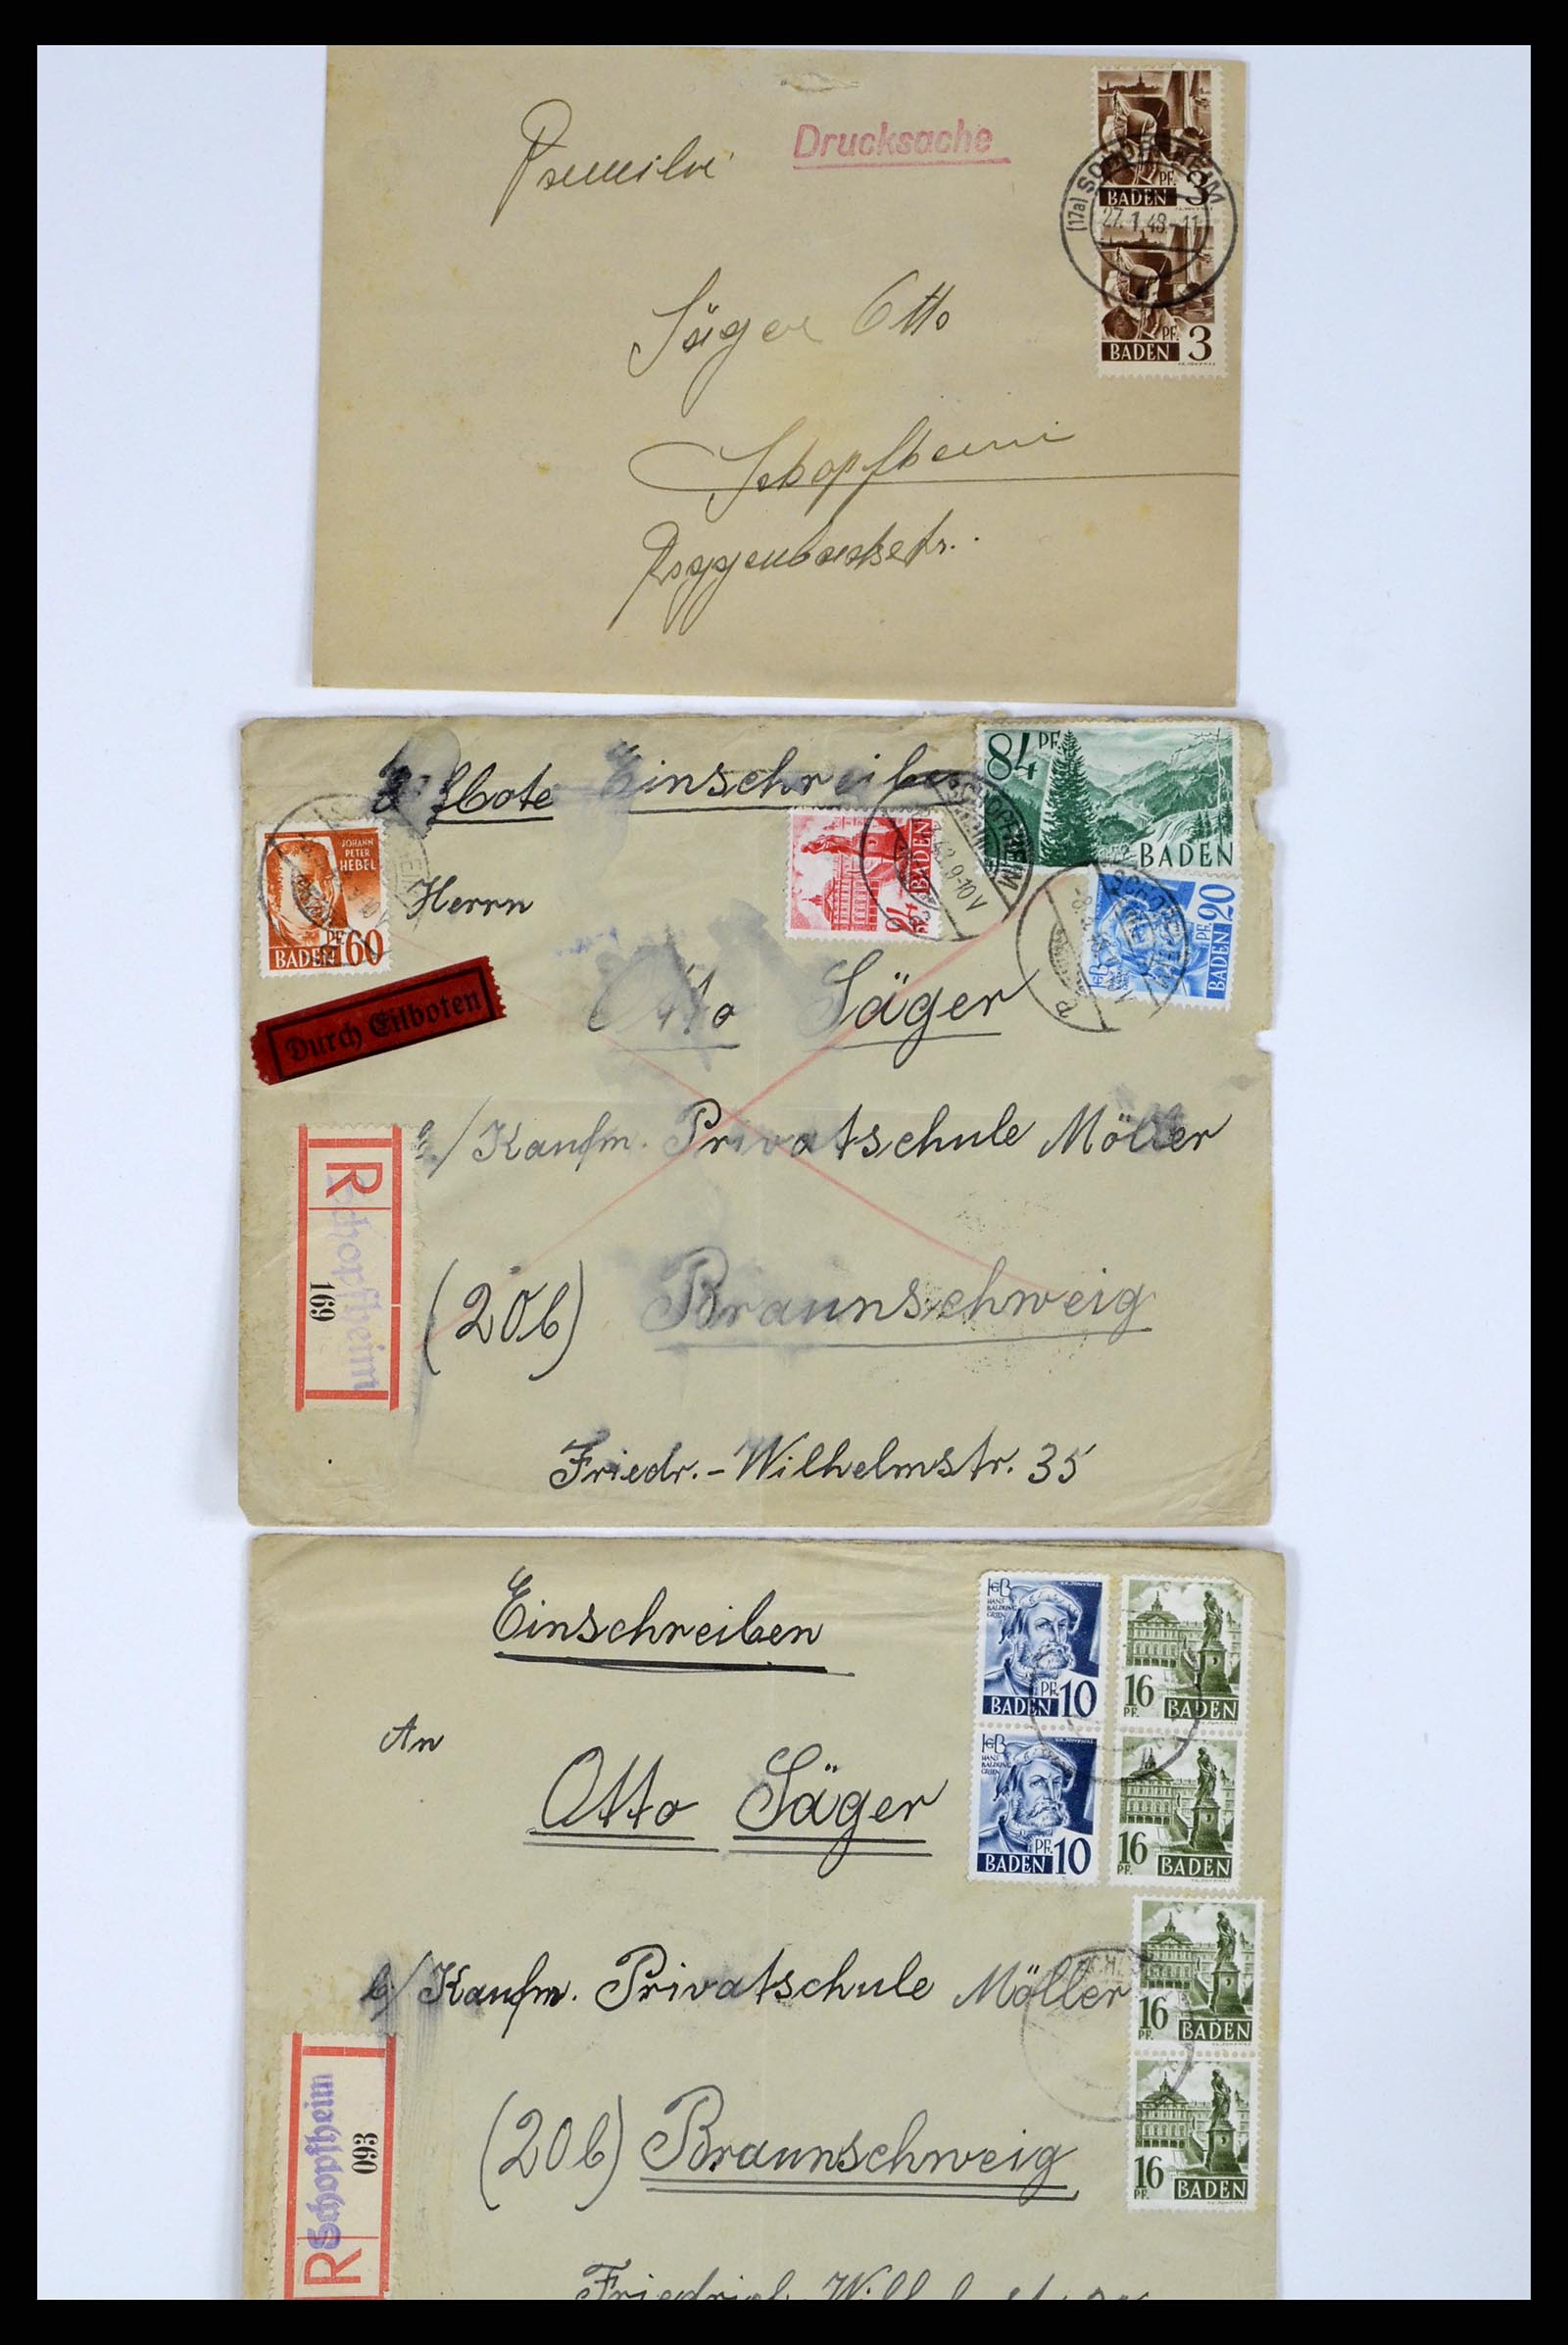 Drucksache
Familie
Säger Otto
Schopfheim
Roggenbachstr.
PF.
BADEN 3
(17a) SCHOPFHEIM
27.1.48.-11
PF.
BADEN 3
Eilbote Einschreiben
84 PF.
BADEN
JOHANN
PETER
HEBEL
PF. 60
BADEN
24
BADEN
9-10 V
SCHOPFHEIM
PF. 20
BADEN
Herrn
Durch Eilboten
Otto Säger
b/ Kaufm. Privatschule Möller
R
Schopfheim
169
(20b) Braunschweig
Friedr.-Wilhelmstr. 35
Einschreiben
HANS
BALDUNG
GRIEN
PF. 10
BADEN
16
PF.
BADEN
An
Otto Säger
HANS
BALDUNG
GRIEN
PF. 10
BADEN
16
PF.
BADEN
b/ Kaufm. Privatschule Möller
16
PF.
BADEN
R
Schopfheim
093
(20b) Braunschweig
16
PF.
BADEN